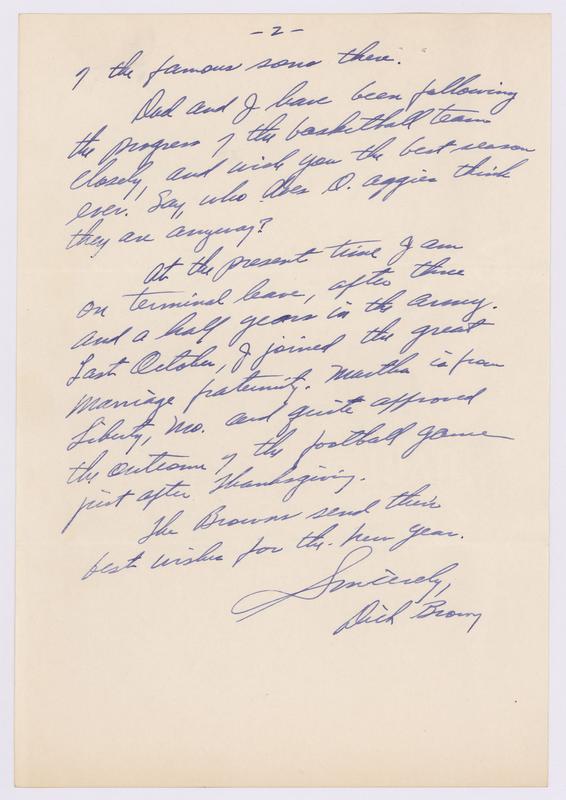 - 2 -
of the famous sons there.
Dad and I have been following
the progress of the basketball team
closely, and wish you the best season
ever. Say, who does O. aggies think
they are anyway?
At the present time I am
on terminal leave, after three
and a half years in the army.
Last October, I joined the great
marriage fraternity. Martha is from
Liberty, Mo. and quite approved
the outcome of the football game
just after Thanksgiving.
The Browns send their
best wishes for the New Year.
Sincerely,
Dick Brown